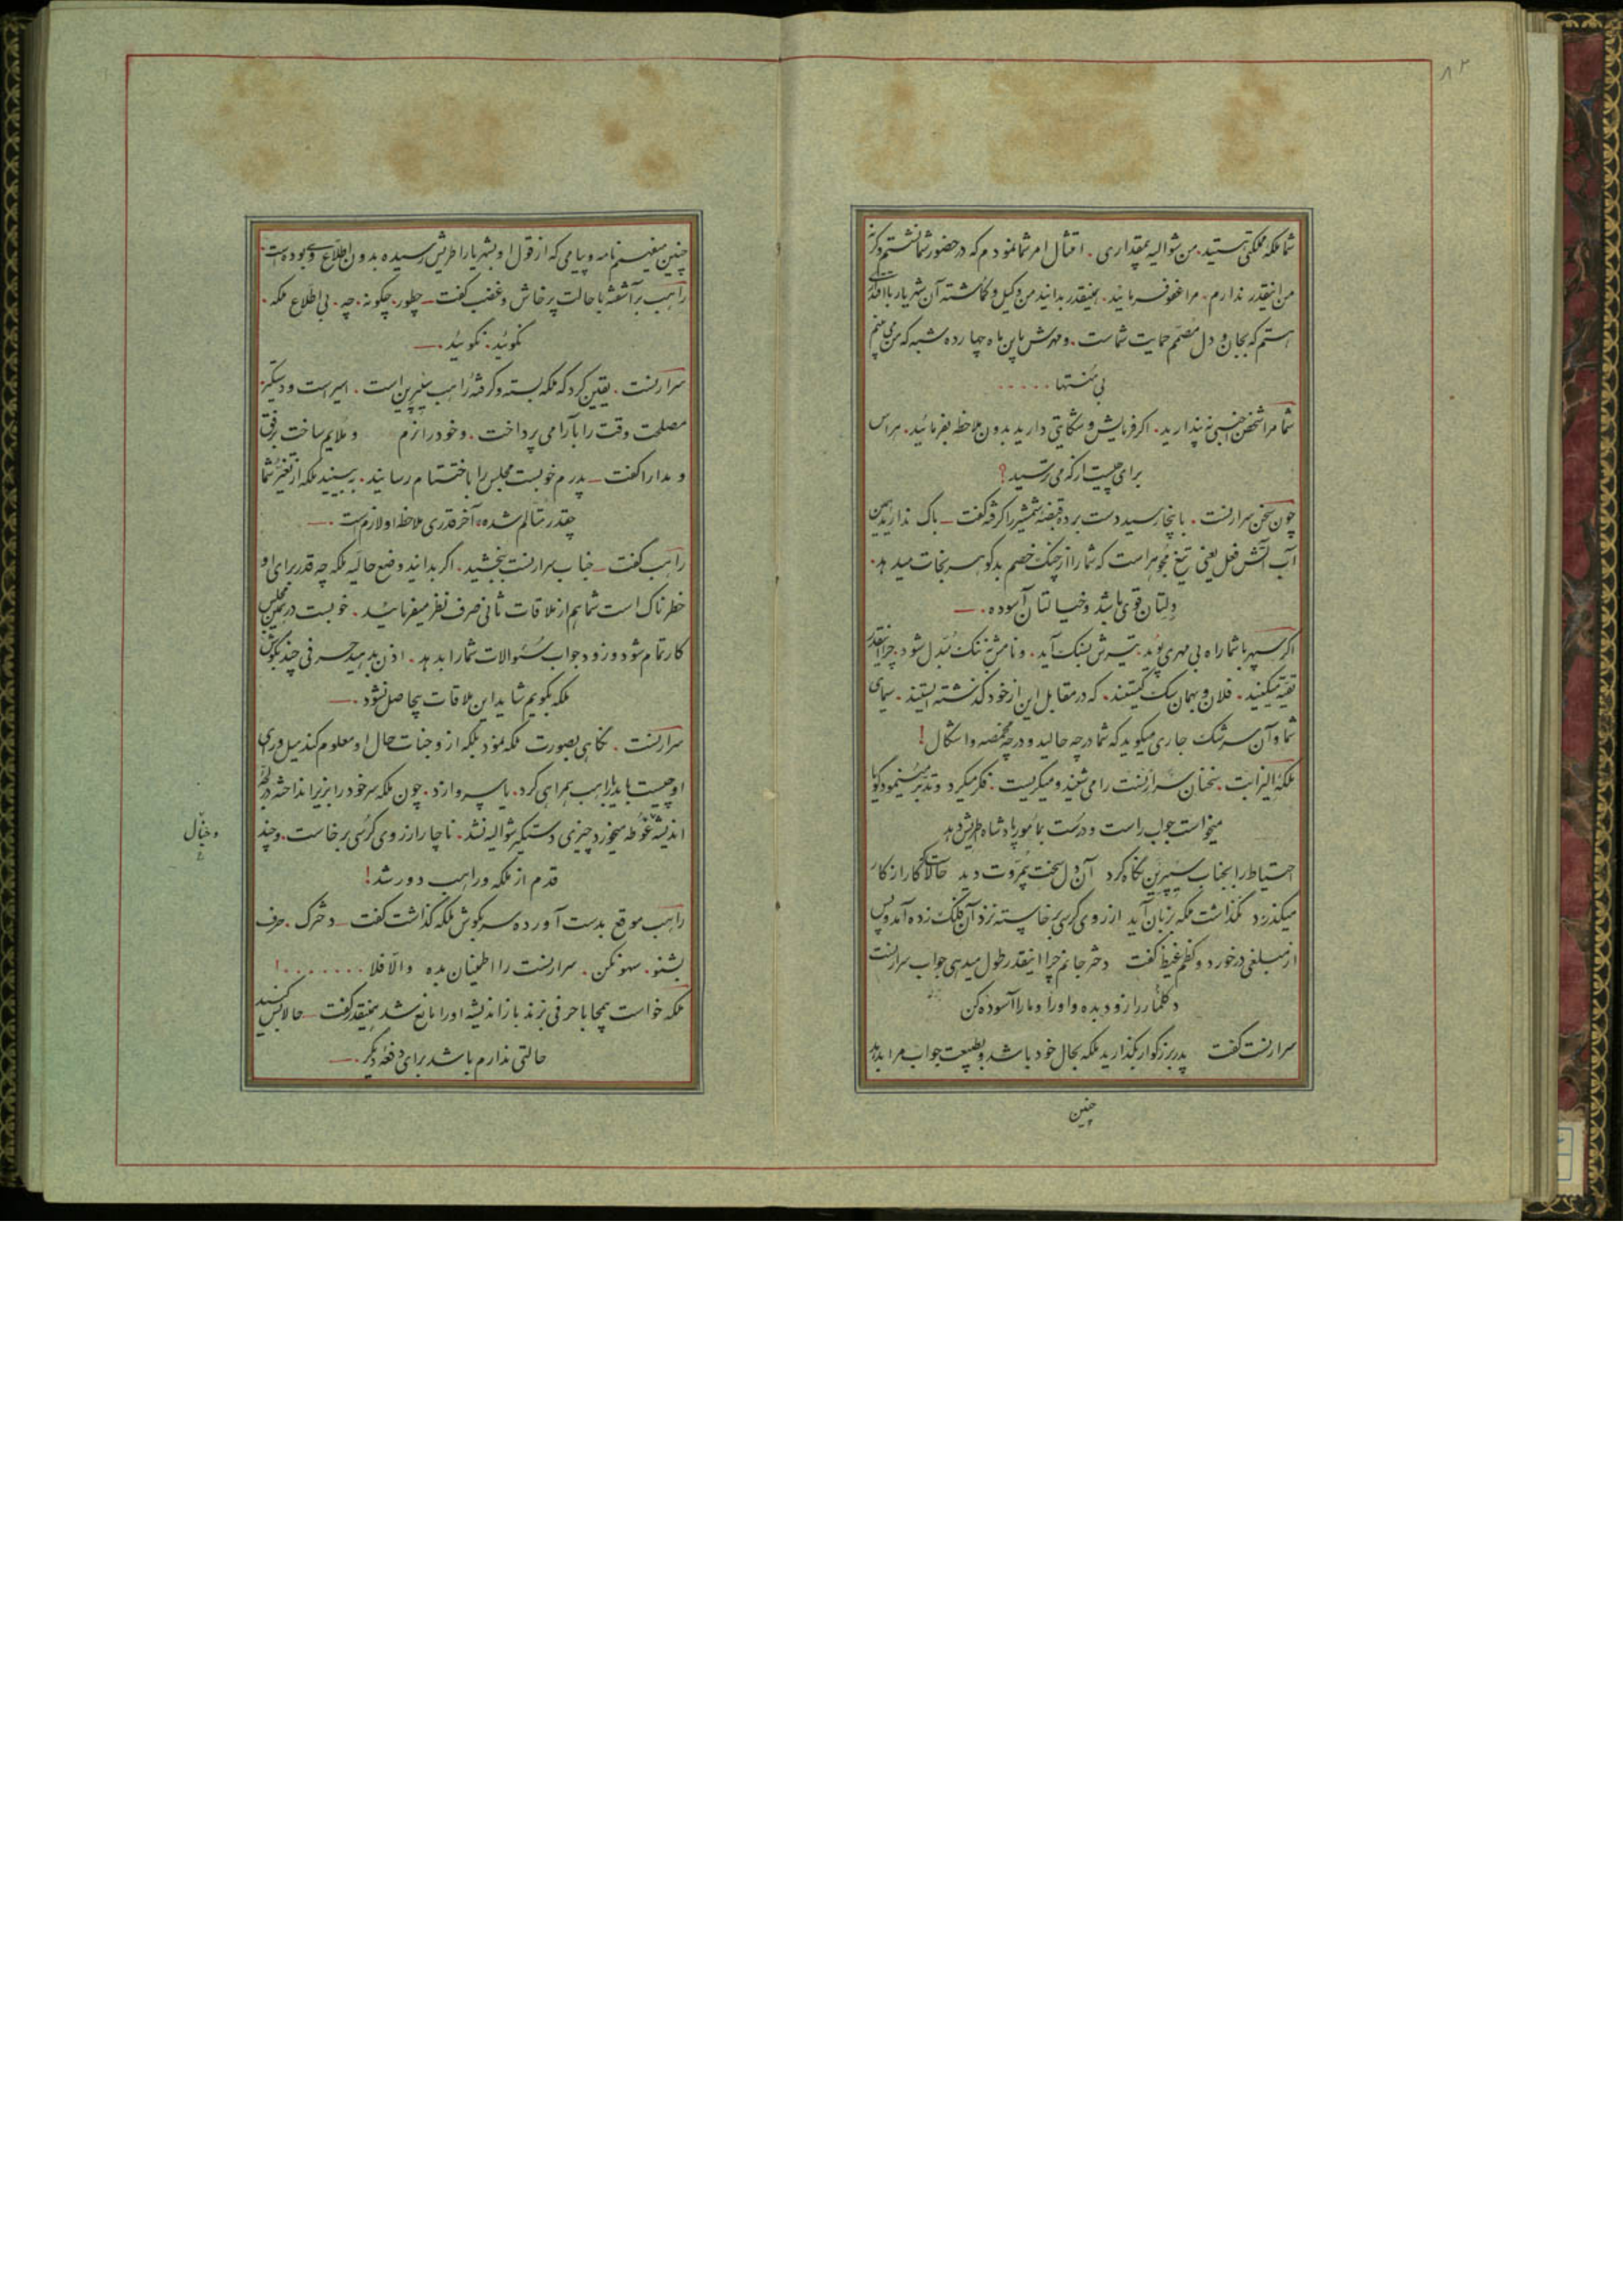 ۸۲
شما ملکه مملکتی هستید. من شوالیه بیمقداری. امتثال امر شما نمودم که در حضور شما نشستم وگرنه
من اینقدر ندارم. مرا عفو فرمائید. همینقدر بدانید من وکیل و گماشته آن شهریار با اقتدای
هستم که بجان و دل مصمم حمایت شماست. و مهرش باین ماه چهارده شبه که من می بینم
بی منتها . . . . .
شما مرا شخص اجنبی نپندارید. اگر فرمایش و شکایتی دارید بدون ملاحظه بفرمائید. هراس
برای چیست از که می ترسید؟
چون سخن سرارنست. باینجا رسید دست برده قبضه شمشیر را گرفته گفت ــ باک ندارید همین
آب آتش فعل یعنی تیغ مجوهر است که شما را از چنگ خصم بدگوهر نجات میدهد.
دلتان قوی باشد و خیالتان آسوده. ــ
اگر سپهر با شما راه بی مهری پوید. تیرش بسنگ آید. و نامش به ننگ مبدل شود. چرا اینقدر
تقیه میکنید. فلان و بهمان سگ کیستند. که در مقابل این از خود گذشته ایستند. سیمای
شما و آن سرشک جاری میگوید که شما در چه حالید و در چه مخمصه و اشکال!
ملکه الیزابت. سخنان سرارنست را می شنید و میگریست. فکر میکرد و تدبر مینمود گویا
میخواست جواب راست و درست بمأمور پادشاه اطریش دهد
احتیاط را بجناب سیپرین نگاه کرد آن دل سخت بیمروت دید حالا کار از کار
میگذرد نگذاشت ملکه بزبان آید از روی کرسی برخاسته نزد آن فلک زده آمد و پس
از مبلغی درخورد و کظم غیظ گفت دختر جانم چرا اینقدر طول میدهی جواب سرارنست
دگلنار را زود بده و او را و ما را آسوده کن
سرارنست گفت پدر بزرگوار بگذارید ملکه بحال خود باشد و بطبیعت جواب مرا بدهد
چنین
چنین میفهمم نامه و پیامی که از قول او بشهریار اطریش رسیده بدون اطلاع وی بوده است.
راهب برآشفته با حالت پرخاش و غضب گفت ــ چطور. چگونه. چه. بی اطلاع ملکه.
نگوئید. نگوئید. ــ
سرارنست. یقین کرد که ملکه بسته و گرفته راهب سیپرین است. اسیر است و دستگیر
مصلحت وقت را بآرامی پرداخت. و خود را نرم و ملایم ساخت برفق
و مدارا گفت ــ پدرم خوبست مجلس را باختتام رسانید. ببینید ملکه از تغیر شما
چقدر متألم شده. آخر قدری ملاحظه او لازم است. ــ
راهب گفت ــ جناب سرارنست ببخشید. اگر بدانید وضع حالیه ملکه چه قدر برای او
خطرناک است شما هم از ملاقات ثانی صرف نظر میفرمائید. خوبست در همین مجلس
کار تمام شود و زود جواب سئوالات شما را بدهد. اذن بدهید حرفی چند بگوش
ملکه بگویم شاید این ملاقات بیحاصل نشود. ــ
سرارنست. نگاهی بصورت ملکه نمود بلکه از وجنات حال او معلوم کند میل و رای
او چیست باید با راهب همراهی کرد. یا سر وا زد. چون ملکه سر خود را بزیر انداخته در لجه
اندیشه غوطه میخورد چیزی دستگیر شوالیه نشد. ناچار از روی کرسی برخاست. و چند
و خیال
قدم از ملکه و راهب دور شد!
راهب موقع بدست آورده سر بگوش ملکه گذاشت گفت ــ دخترک. حرف
بشنو. سهو نکن. سرارنست را اطمینان بده والا فلا . . . . . . . !
ملکه خواست بیمحابا حرفی بزند باز اندیشه او را مانع شد همینقدر گفت ــ حالا بس کنید
حالتی ندارم باشد برای دفعه دیگر. ــ